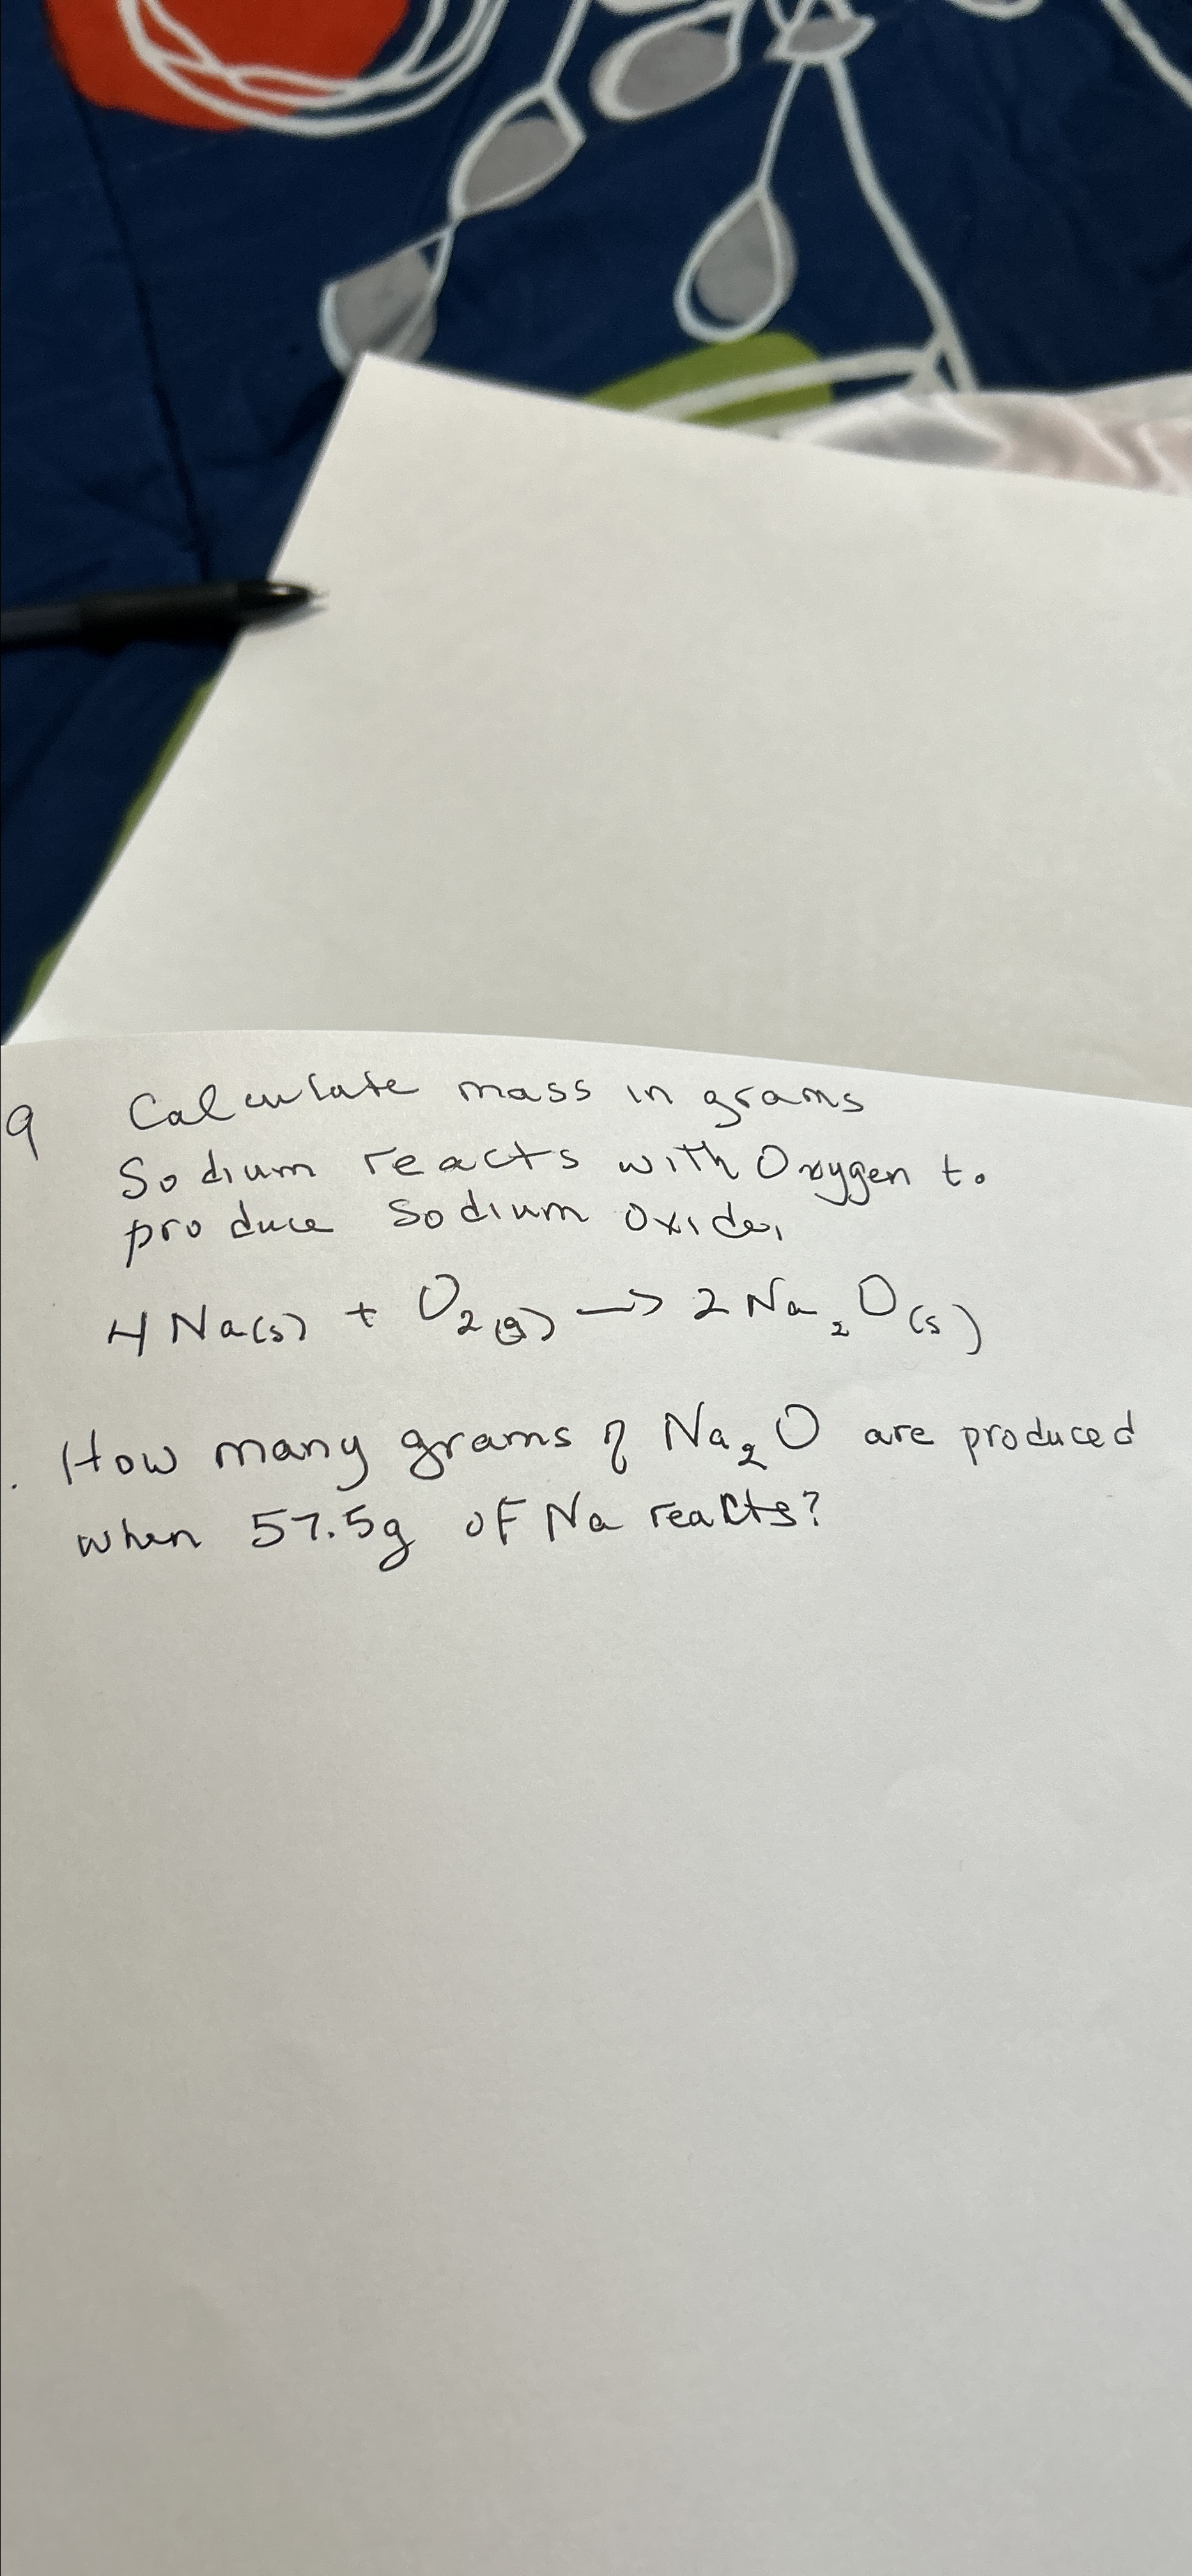 9 Calculate mass in grams
Sodium reacts with Oxygen to
produce Sodium Oxide,
4 Na(s) + O₂(g) → 2 Na₂O(s)
. How many grams of Na₂O are produced
when 57.5g of Na reacts?